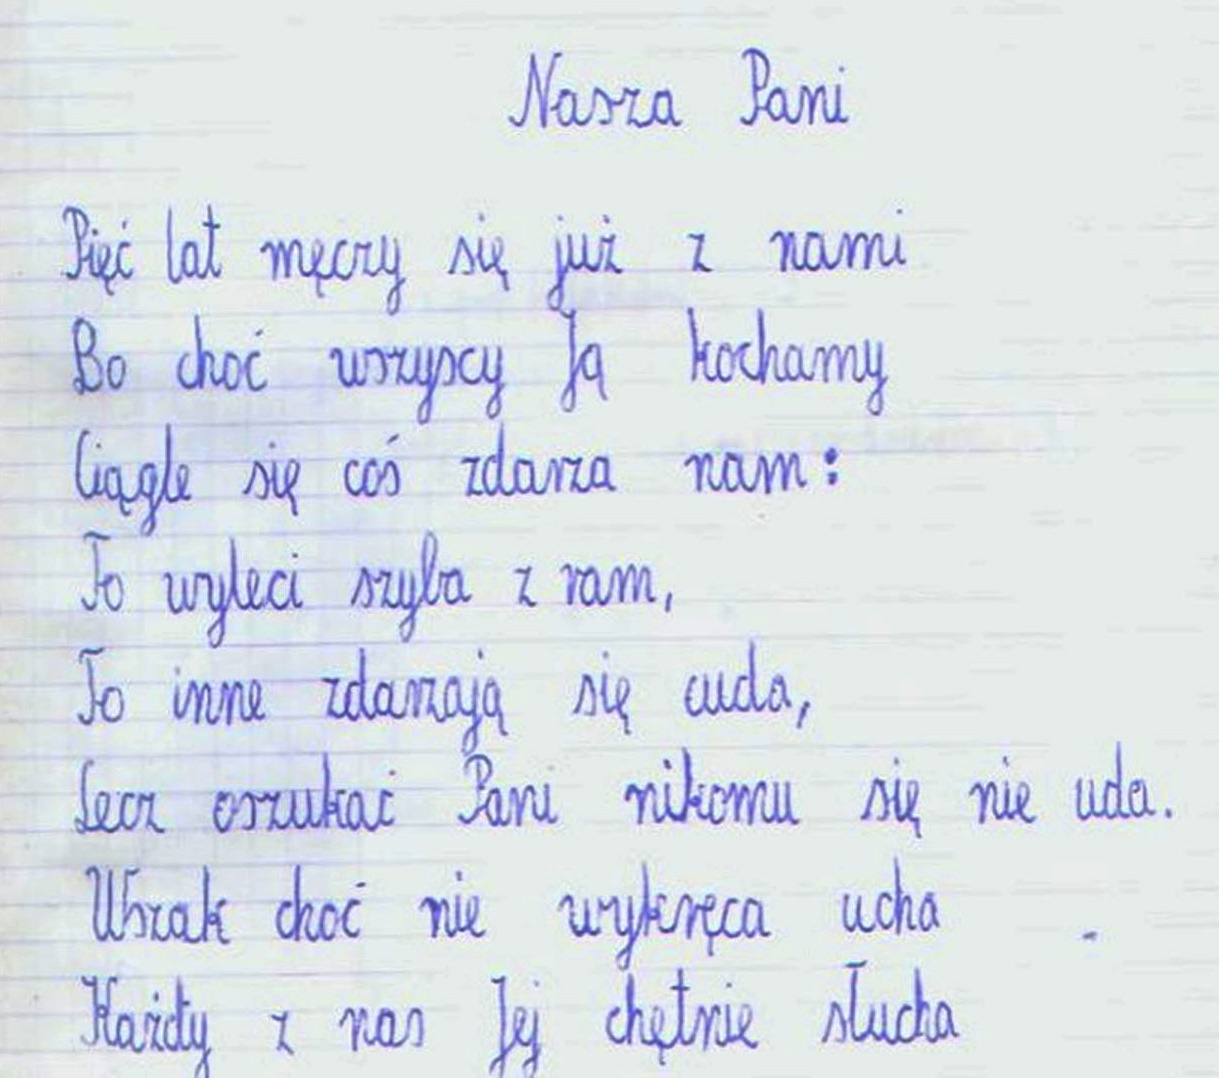 Nasza Pani
Pięć lat męczy się już z nami
Bo choć wszyscy Ją kochamy
Ciągle się coś zdarza nam:
To wyleci szyba z ram,
To inne zdarzają się cuda,
Lecz oszukać Pani nikomu się nie uda.
Wszak choć nie wykręca ucha
Każdy z nas Jej chętnie słucha